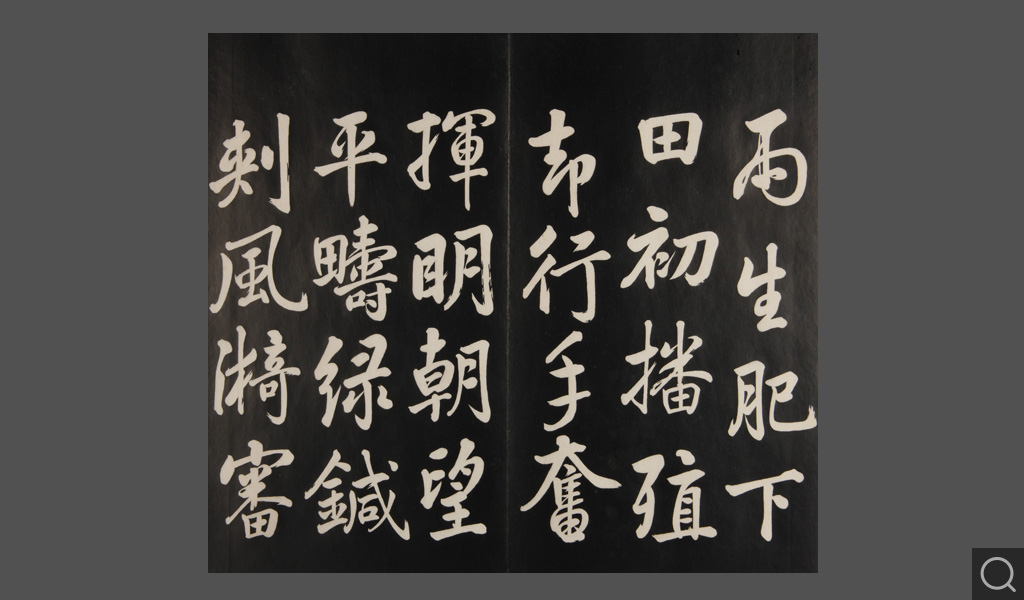 雨生肥下
田初播殖
却行手奮
揮明朝望
平疇綠鍼
刺風漪審